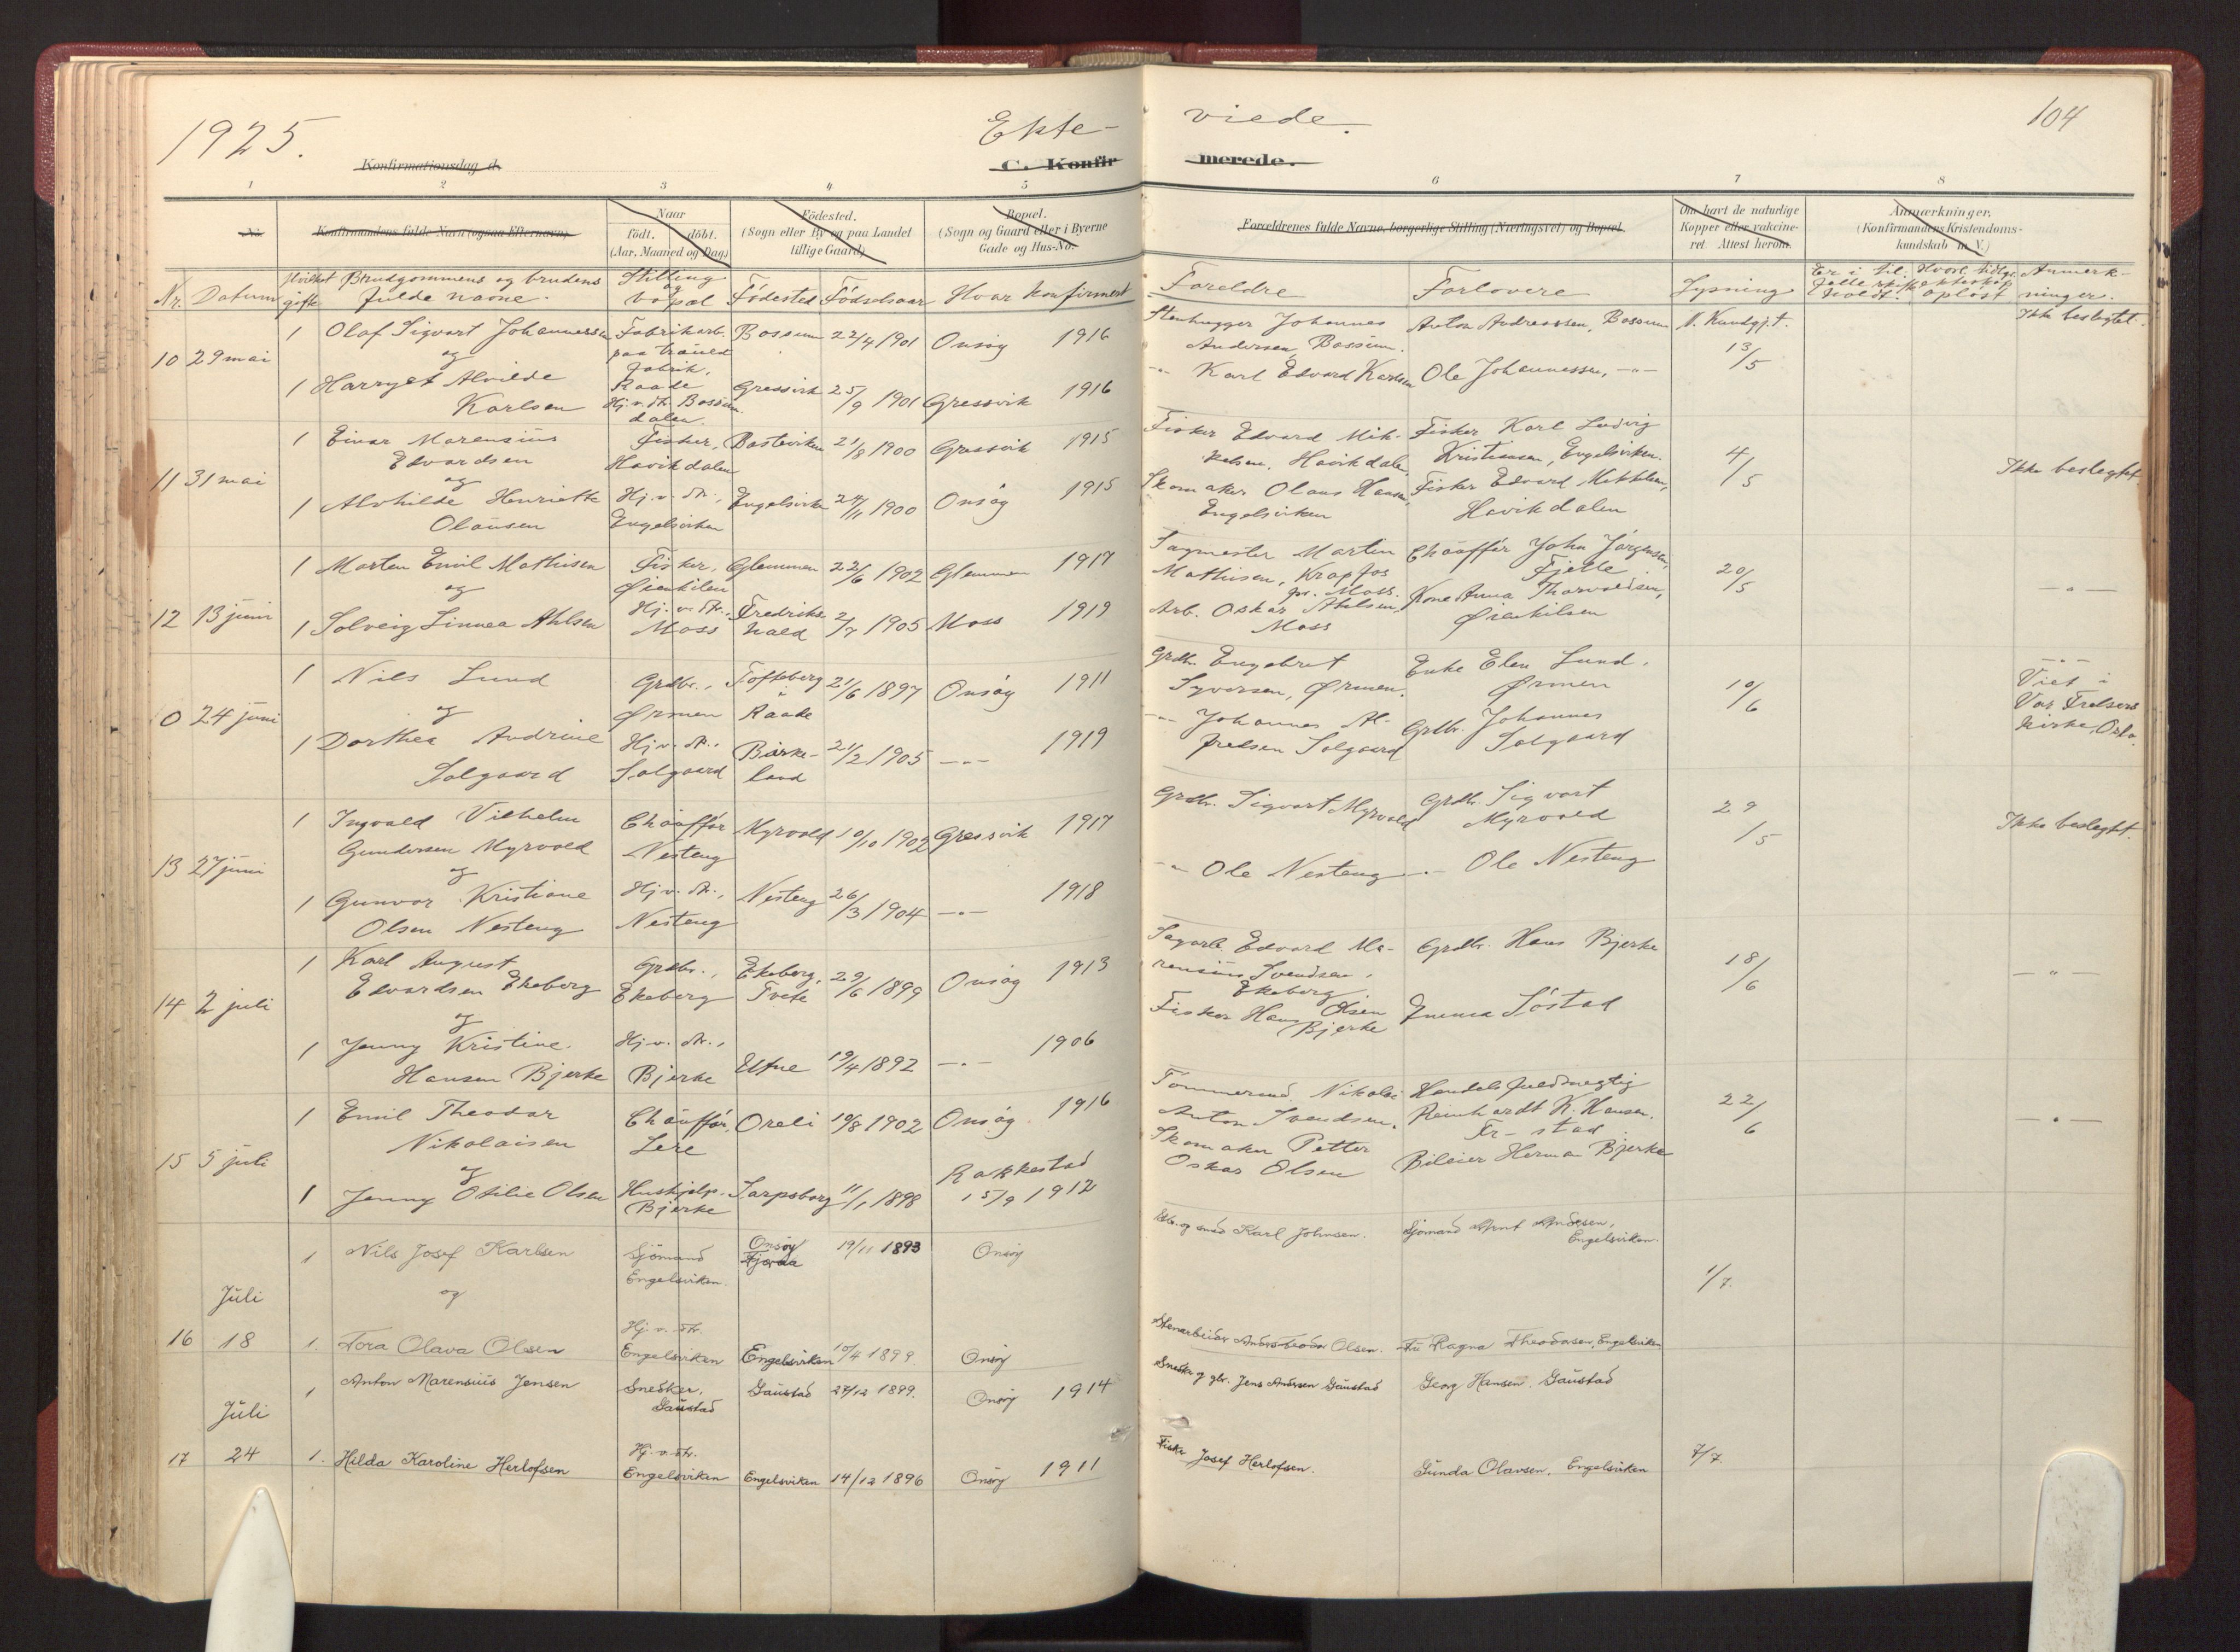 1925.
Ekte-
viede.
104
Konfirmationsdag d.
C. Konfir
merede.
1 2 3 4 5 6 7 8
No.
Konfirmandens fulde Navn (ogsaa Efternavn).
Naar
født. døbt.
(Aar, Maaned og Dag)
Fødested.
(Sogn eller By og paa Landet
tillige Gaard)
Bopæl.
(Sogn og Gaard eller i Byerne
Gade og Hus-No.
Forældrenes fulde Navne, borgerlige Stilling (Næringsvei) og Bopæl.
Om havt de naturlige
Kopper eller vakcine-
ret. Attest herom.
Anmærkninger.
(Konfirmandens Kristendoms-
kundskab m. V.)
Nr. Datum
Hvilket
gifte
Brudgommens og brudens
fulde navne.
Stilling
og
bopæl
Fødested Fødselsaar Hvor konfirmert
Foreldre Forlovere Lysning
Er i til-
felle skifte
holdt?
Hvorl. tidlgr.
ekteskap
opløst
Anmerk-
ninger.
10 29 mai
1 Olaf Sigvart Johannessen
og
Fabrikarb.
paa trauld
fabrik,
Raade
Bossum 22/4 1901 Onsøy 1916
Stenhugger Johannes
Andersen, Bossum.
Anton Andreassen, Bossum
N. Kundgj.t.
13/5
Ikke beslegtet.
1 Harryet Alvilde
Karlsen
Hj. v. dtr. Bossum
dalen.
Gressvik 25/9 1901 Gressvik 1916
-"- Karl Edvard Karlsen
Ole Johannessen, -"-
11 31 mai
1 Einar Marensius
Edvardsen
og
Fisker,
Havikdalen
Basteviken 21/8 1900 Gressvik 1915
Fisker Edvard Mik-
kelsen, Havikdalen,
Fisker Karl Ludvig
Kristiansen, Engelsviken.
4/5
Ikke beslegtet
1 Alvhilde Henriette
Olausen
Hj. v. dtr.,
Engelsviken
Engelsviken 24/11 1900 Onsøy 1915
Skomaker Olaus Hansen,
Engelsviken
Fisker Edvard Mikkelsen,
Havikdalen
12 13 juni
1 Morten Emil Mathisen
og
Fisker,
Øienkilen
Glemmen 22/6 1902 Glemmen 1917
Sagmester Martin
Mathisen, Krapfos
pr. Moss.
Chauffør John Jørgensen,
Fjelle
20/5
-"-
1 Solveig Linnea Ahlsen
Hj. v. dtr.,
Moss
Fredriks
hald
2/7 1905 Moss 1919
Arb. Oskar Ahlsen,
Moss
Kone Anna Thorvaldsen,
Øienkilen
0 24 juni
1 Nils Lund
og
Grdbr.,
Ørmen
Tofteberg
i
Raade
21/6 1897 Onsøy 1911
Grdbr. Engebret
Syversen, Ørmen.
Enke Elen Lund,
Ørmen
10/6
-"-
Viet i
Vor Frelsers
kirke, Oslo.
1 Dorthea Andrine
Solgaard
Hj. v. dtr.,
Solgaard
Bjørke-
land
21/2 1905 -"- 1919
-"- Johannes Al-
fredsen Solgaard
Grdbr. Johannes
Solgaard
13 27 juni
1 Ingvald Vilhelm
Gundersen Myrvold
og
Chauffør
Nesteng
Myrvold 10/10 1902 Gressvik 1917
Grdbr. Sigvart Myrvold
Grdbr. Sigvart
Myrvold
29/5
Ikke beslegtet.
1 Gunvor Kristiane
Olsen Nesteng
Hj. v. dtr.,
Nesteng
Nesteng 26/3 1904 -"- 1918
-"- Ole Nesteng
-"- Ole Nesteng
14 2 juli
1 Karl August
Edvardsen Ekeberg
og
Grdbr.,
Ekeberg
Ekeberg,
Tvete
29/6 1899 Onsøy 1913
Sagarb. Edvard Ma-
rensius Svendsen,
Ekeberg
Grdbr. Hans Bjerke
18/6
-"-
1 Jenny Kristine
Hansen Bjerke
Hj. v. dtr.,
Bjerke
Utne 19/4 1892 -"- 1906
Fisker Hans Olsen
Bjerke
Emma Søstad
15 5 juli
1 Emil Theodor
Nikolaisen
og
Chauffør,
Lere
Oreli 10/8 1902 Onsøy 1916
Tømmermd. Nikolai
Anton Svendsen.
Handelsfuldmegtig
Reinhardt K. Hansen.
Fr-stad
22/6
-"-
1 Jenny Otilie Olsen
Hushjelp,
Bjerke
Sarpsborg 11/1 1898
Rakkestad
15/9 1912
Skomaker Petter
Oskar Olsen
Bileier Herman Bjerke
1 Nils Josef Karlsen
og
Sjømand
Engelsviken.
Onsøy
19/11 1893 Onsøy
Karl Johnsen.
Sjømand Arnt Andersen,
Engelsviken.
1/7.
Juli
16 18 1. Tora Olava Olsen
Hj. v. dtr.
Engelsviken
Engelsviken 10/4 1899 Onsøy
Stenarbeider Olsen.
Fru Ragna Theodorsen, Engelsviken
Juli
1 Anton Marensius Jensen
Snedker,
Gaustad
Gaustad 27/12 1899. Onsøy 1914
Snedker og gbr. Jens Andersen Gaustad
Georg Hansen, Gaustad
17 24 1. Hilda Karoline Herlofsen
Hj. v. dtr.
Engelsviken
Engelsviken 14/12 1896 Onsøy 1911
Fisker Josef Herlofsen.
Gunda Olavsen, Engelsviken
7/7